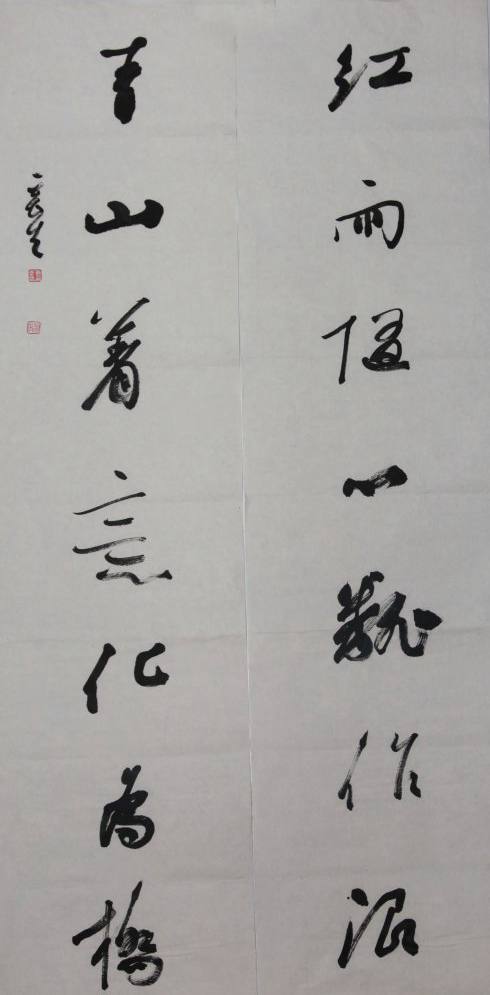 红雨随心翻作浪
青山着意化为橋